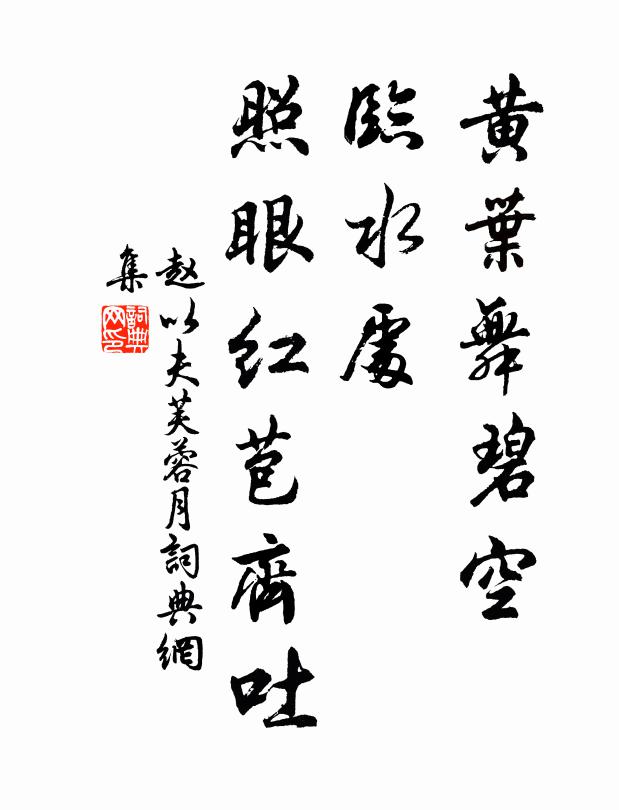 黃葉舞碧空
臨水處
照眼紅苞齊吐
趙以夫芙蓉月詞典網
集
詞典网印